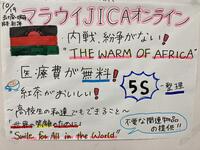 10/9
マラウイJICAオンライン
内戦、紛争がない!!
"THE WARM OF AFRICA"
医療費が無料!
紅茶がおいしい!
5S
-整理
〜高校生の私達でもできること〜
"Smile for All in the World"
不要な関連物品の提供!!